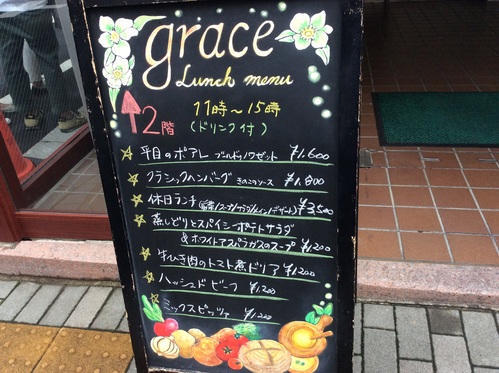 grace
Lunch menu
11時～15時
2階
(ドリンク付)
平目のポアレ ブールドノワゼット ¥1.600
クラシックハンバーグ きのこのソース ¥1.800
休日ランチ ¥3,500
蒸しどりとスパイシーポテトサラダ
&ホワイトアスパラガスのスープ ¥1,200
牛ひき肉のトマト煮ドリア ¥1,200
ハッシュドビーフ ¥1,200
ミックスピッツァ ¥1,200